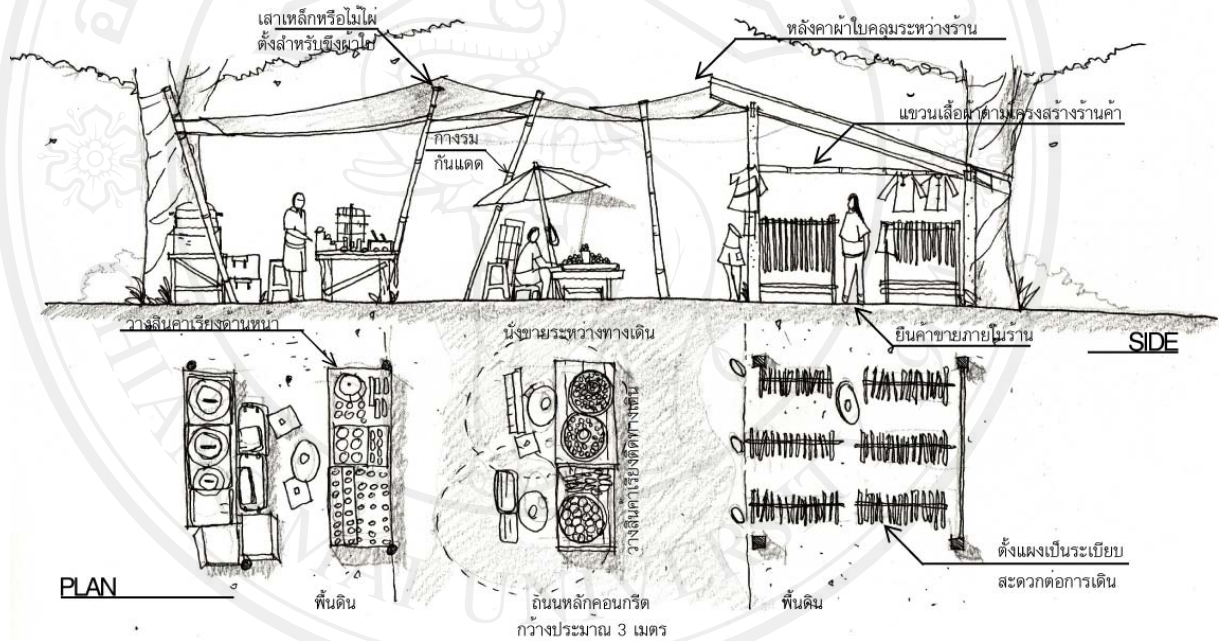 เสาเหล็กหรือไม้ไผ่
ตั้งสำหรับขึงผ้าใบ
หลังคาผ้าใบคลุมระหว่างร้าน
แขวนเสื้อผ้าตามโครงสร้างร้านค้า
กางร่ม
กันแดด
วางสินค้าเรียงด้านหน้า
นั่งขายระหว่างทางเดิน
ยืนค้าขายภายในร้าน
SIDE
วางสินค้าเรียงติดทางเดิน
ตั้งแผงเป็นระเบียบ
สะดวกต่อการเดิน
PLAN
พื้นดิน
ถนนหลักคอนกรีต
กว้างประมาณ 3 เมตร
พื้นดิน